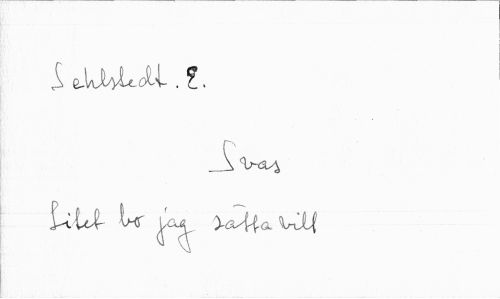 Sehlstedt. E.
Svas
Litet bo jag sätta vill